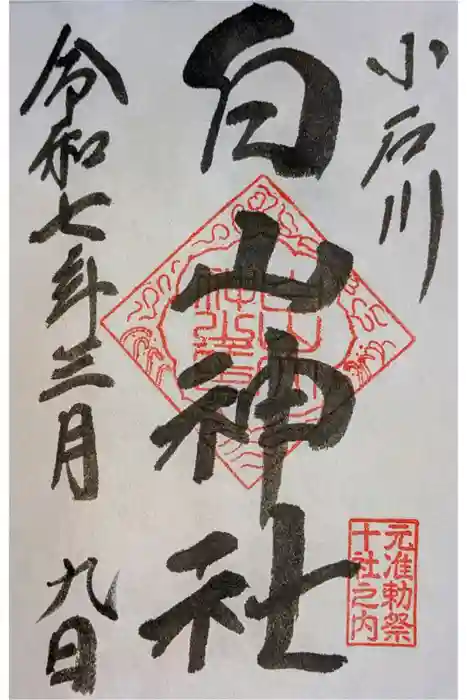 小石川
白山神社
元准勅祭
十社之内
令和七年三月九日